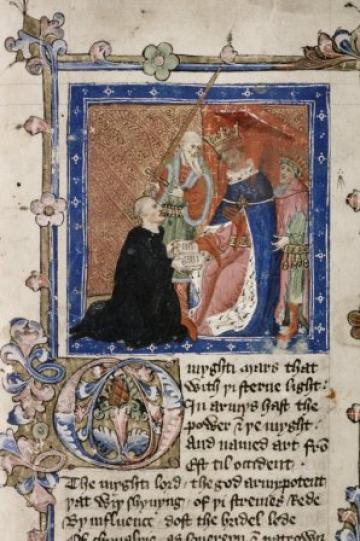 O myghti mars that
with þi sterne light:
In armys hast the
power & þe myght.
And named art fro
Est til occident.
The myghti lord, the god armypotent
þat wiþ shynyng, of þi stremes Rede
By influence, dost the bridel lede
Of cheualrie, as souereyn & patrown